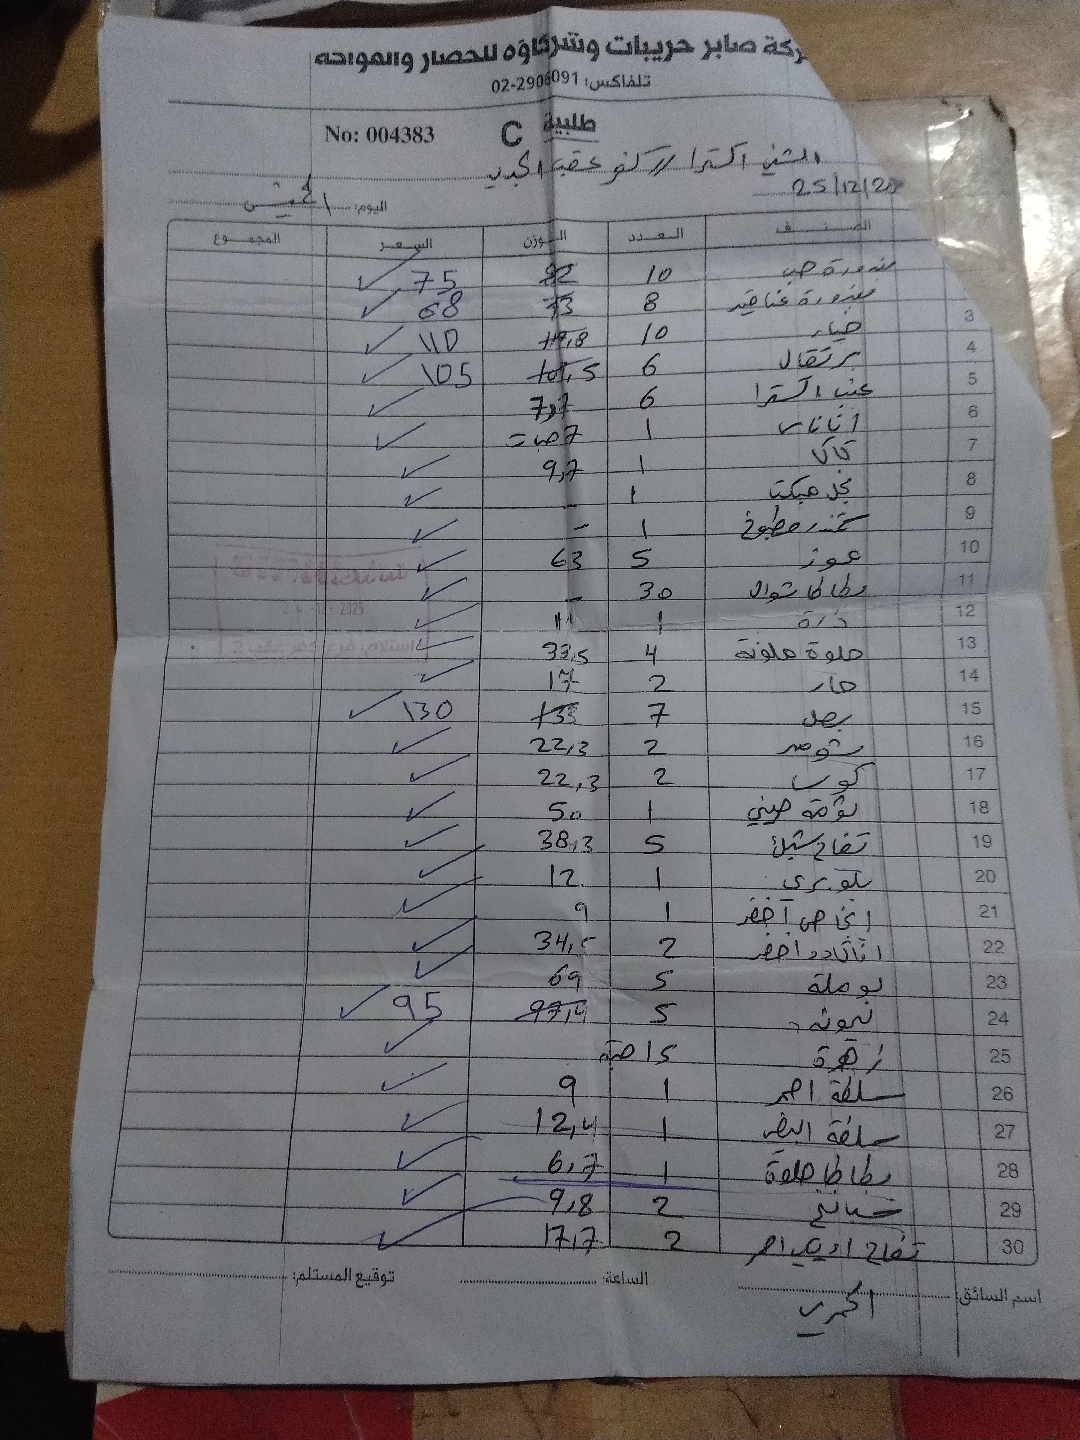 ركة صابر حريبات وشركاؤه للخضار والفواكه
تلفاكس: 02-2906091
طلبية C No: 004383
اكسترا
25/12/20
اليوم: الخميس
الصنف العدد الوزن السعر المجموع
بندورة حب 10 82 75 ✓
بندورة عناقيد 8 73 68 ✓
3 خيار 10 119,8 110 ✓
4 برتقال 6 107,5 105 ✓
5 عنب اكسترا 6 ✓
6 اناناس 1 7 حبات ✓
7 كاكا 1 9,7 ✓
8 1 - ✓
9 شمندر مطبوخ 1 - ✓
10 موز 5 63 ✓
11 بطاطا شوال 30 - ✓
12 ذرة 1 11 ✓
13 حلوة ملونة 4 33,5 ✓
14 حار 2 17 ✓
15 بصل 7 133 130 ✓
16 شومر 2 22,3 ✓
17 كوسا 2 22,3 ✓
18 ثومة صيني 1 50 ✓
19 تفاح 5 38,3 ✓
20 1 12 ✓
21 اجاص اخضر 1 9 ✓
22 اخضر 2 34,5 ✓
23 بوملة 5 69 ✓
24 ليمون 5 97,4 95 ✓
25 زهرة 15 حبة ✓
26 سلطة احمر 1 9 ✓
27 سلطة ابيض 1 12,4 ✓
28 بطاطا حلوة 1 6,7 ✓
29 سبانخ 2 9,8 ✓
30 تفاح 2 17,7 ✓
2025
استلام: فرع كفر عقب 2
اسم السائق: الساعة: توقيع المستلم: